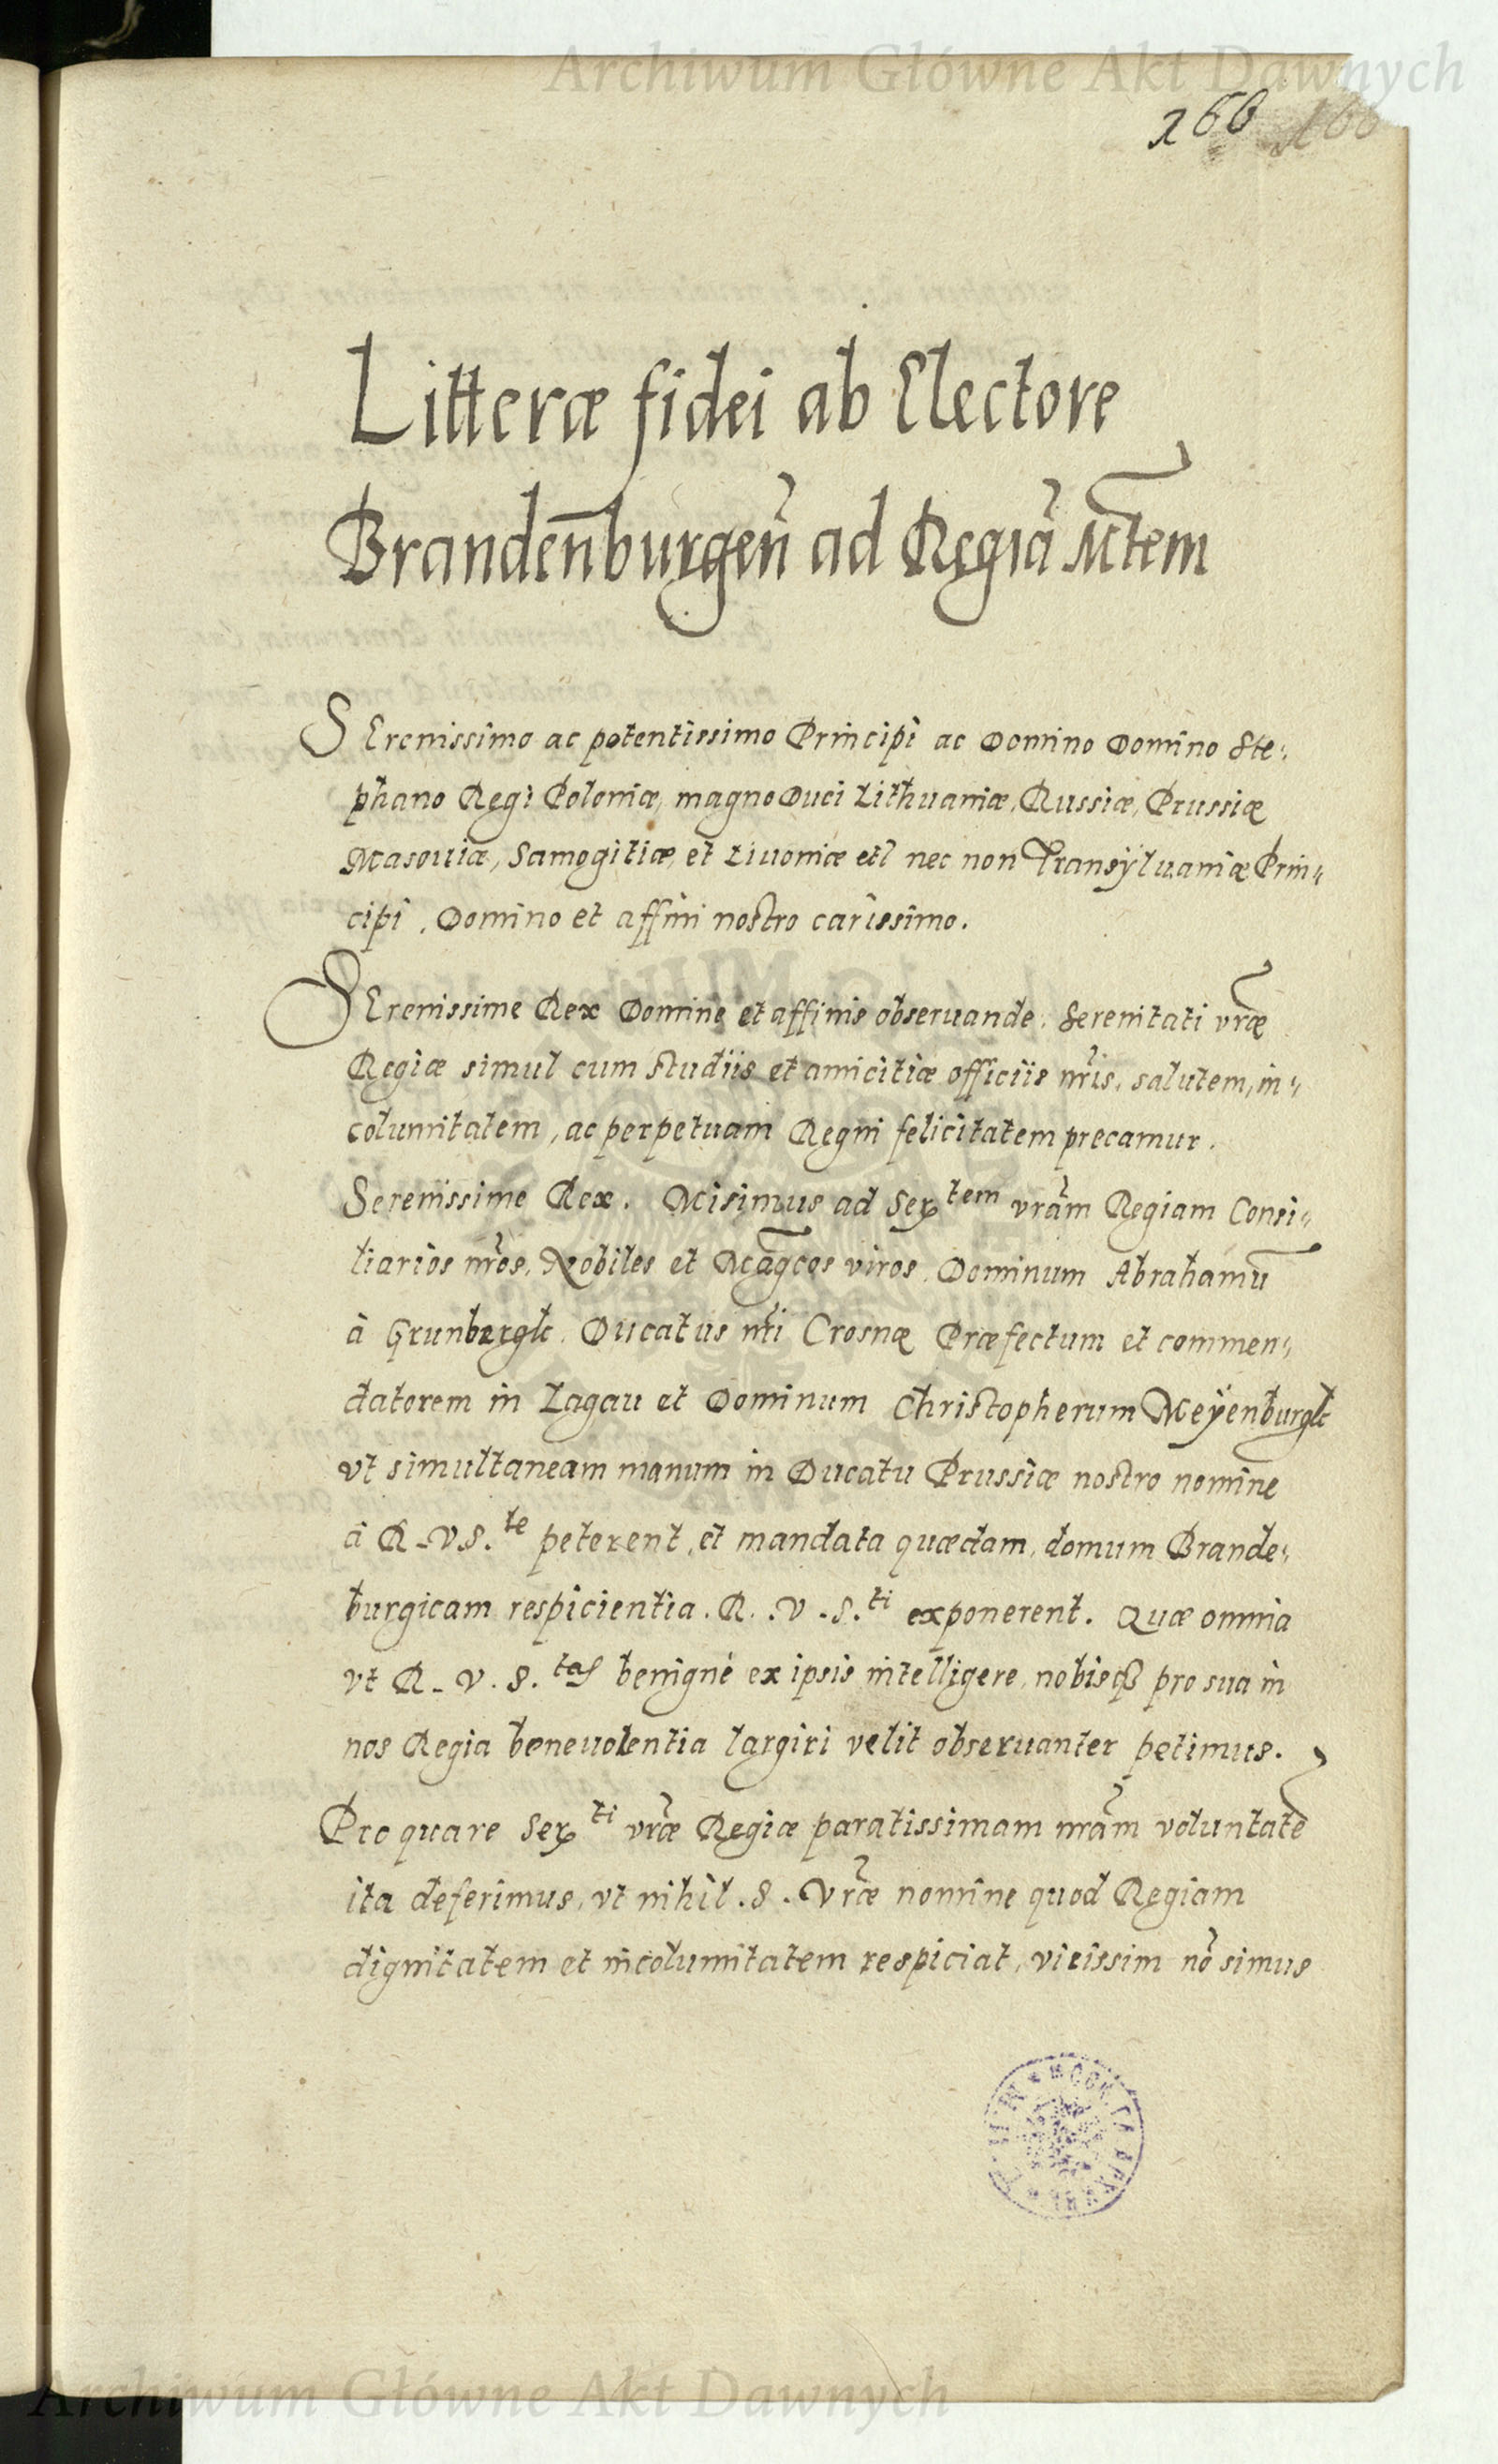 Archiwum Główne Akt Dawnych
166 166
Litteræ fidei ab Electore
Brandēnburgeñ ad Regiã Mtem
SErenissimo ac potentissimo Principi ac Domino Domino Ste:
phano Regi Poloniæ, magno Duci Lithuaniæ, Russiæ, Prussiæ
Masouiæ, Samogitiæ, et Liuoniæ etc nec non Transÿluaniæ Prin:
cipi, Domino et affini nostro carissimo.
SErenissime Rex Domine et affinis obseruande. Serenitati vrãe
Regiæ simul cum studiis et amicitiæ officiis nr̃is, salutem, in:
columitatem, ac perpetuam Regni felicitatem precamur.
Serenissime Rex. Misimus ad Serᵗᵉᵐ vrãm Regiam Consi:
liarios nr̃os, Nobiles et Mãgcos viros, Dominum Abrahamũ
à Grunbergk, Ducatus nr̃i Crosnæ Præfectum et commen:
datorem in Lagau et Dominum Christopherum Meÿenburgk
vt simultaneam manum in Ducatu Prussiæ nostro nomine
à R.V.S.ᵗᵉ peterent, et mandata quædam, domum Brande:
burgicam respicientia. R. V. S.ᵗⁱ exponerent. Quæ omnia
vt R. V. S.ᵗᵃˢ benignè ex ipsis intelligere, nobisqȝ pro sua in
nos Regia beneuolentia largiri velit obseruanter petimus.
Pro quare Serᵗⁱ vrãe Regiæ paratissimam nrãm voluntatẽ
ita deferimus, vt nihil .S. Vrãe nomine quod Regiam
dignitatem et incolumitatem respiciat, vicissim nõ simus
Archiwum Główne Akt Dawnych